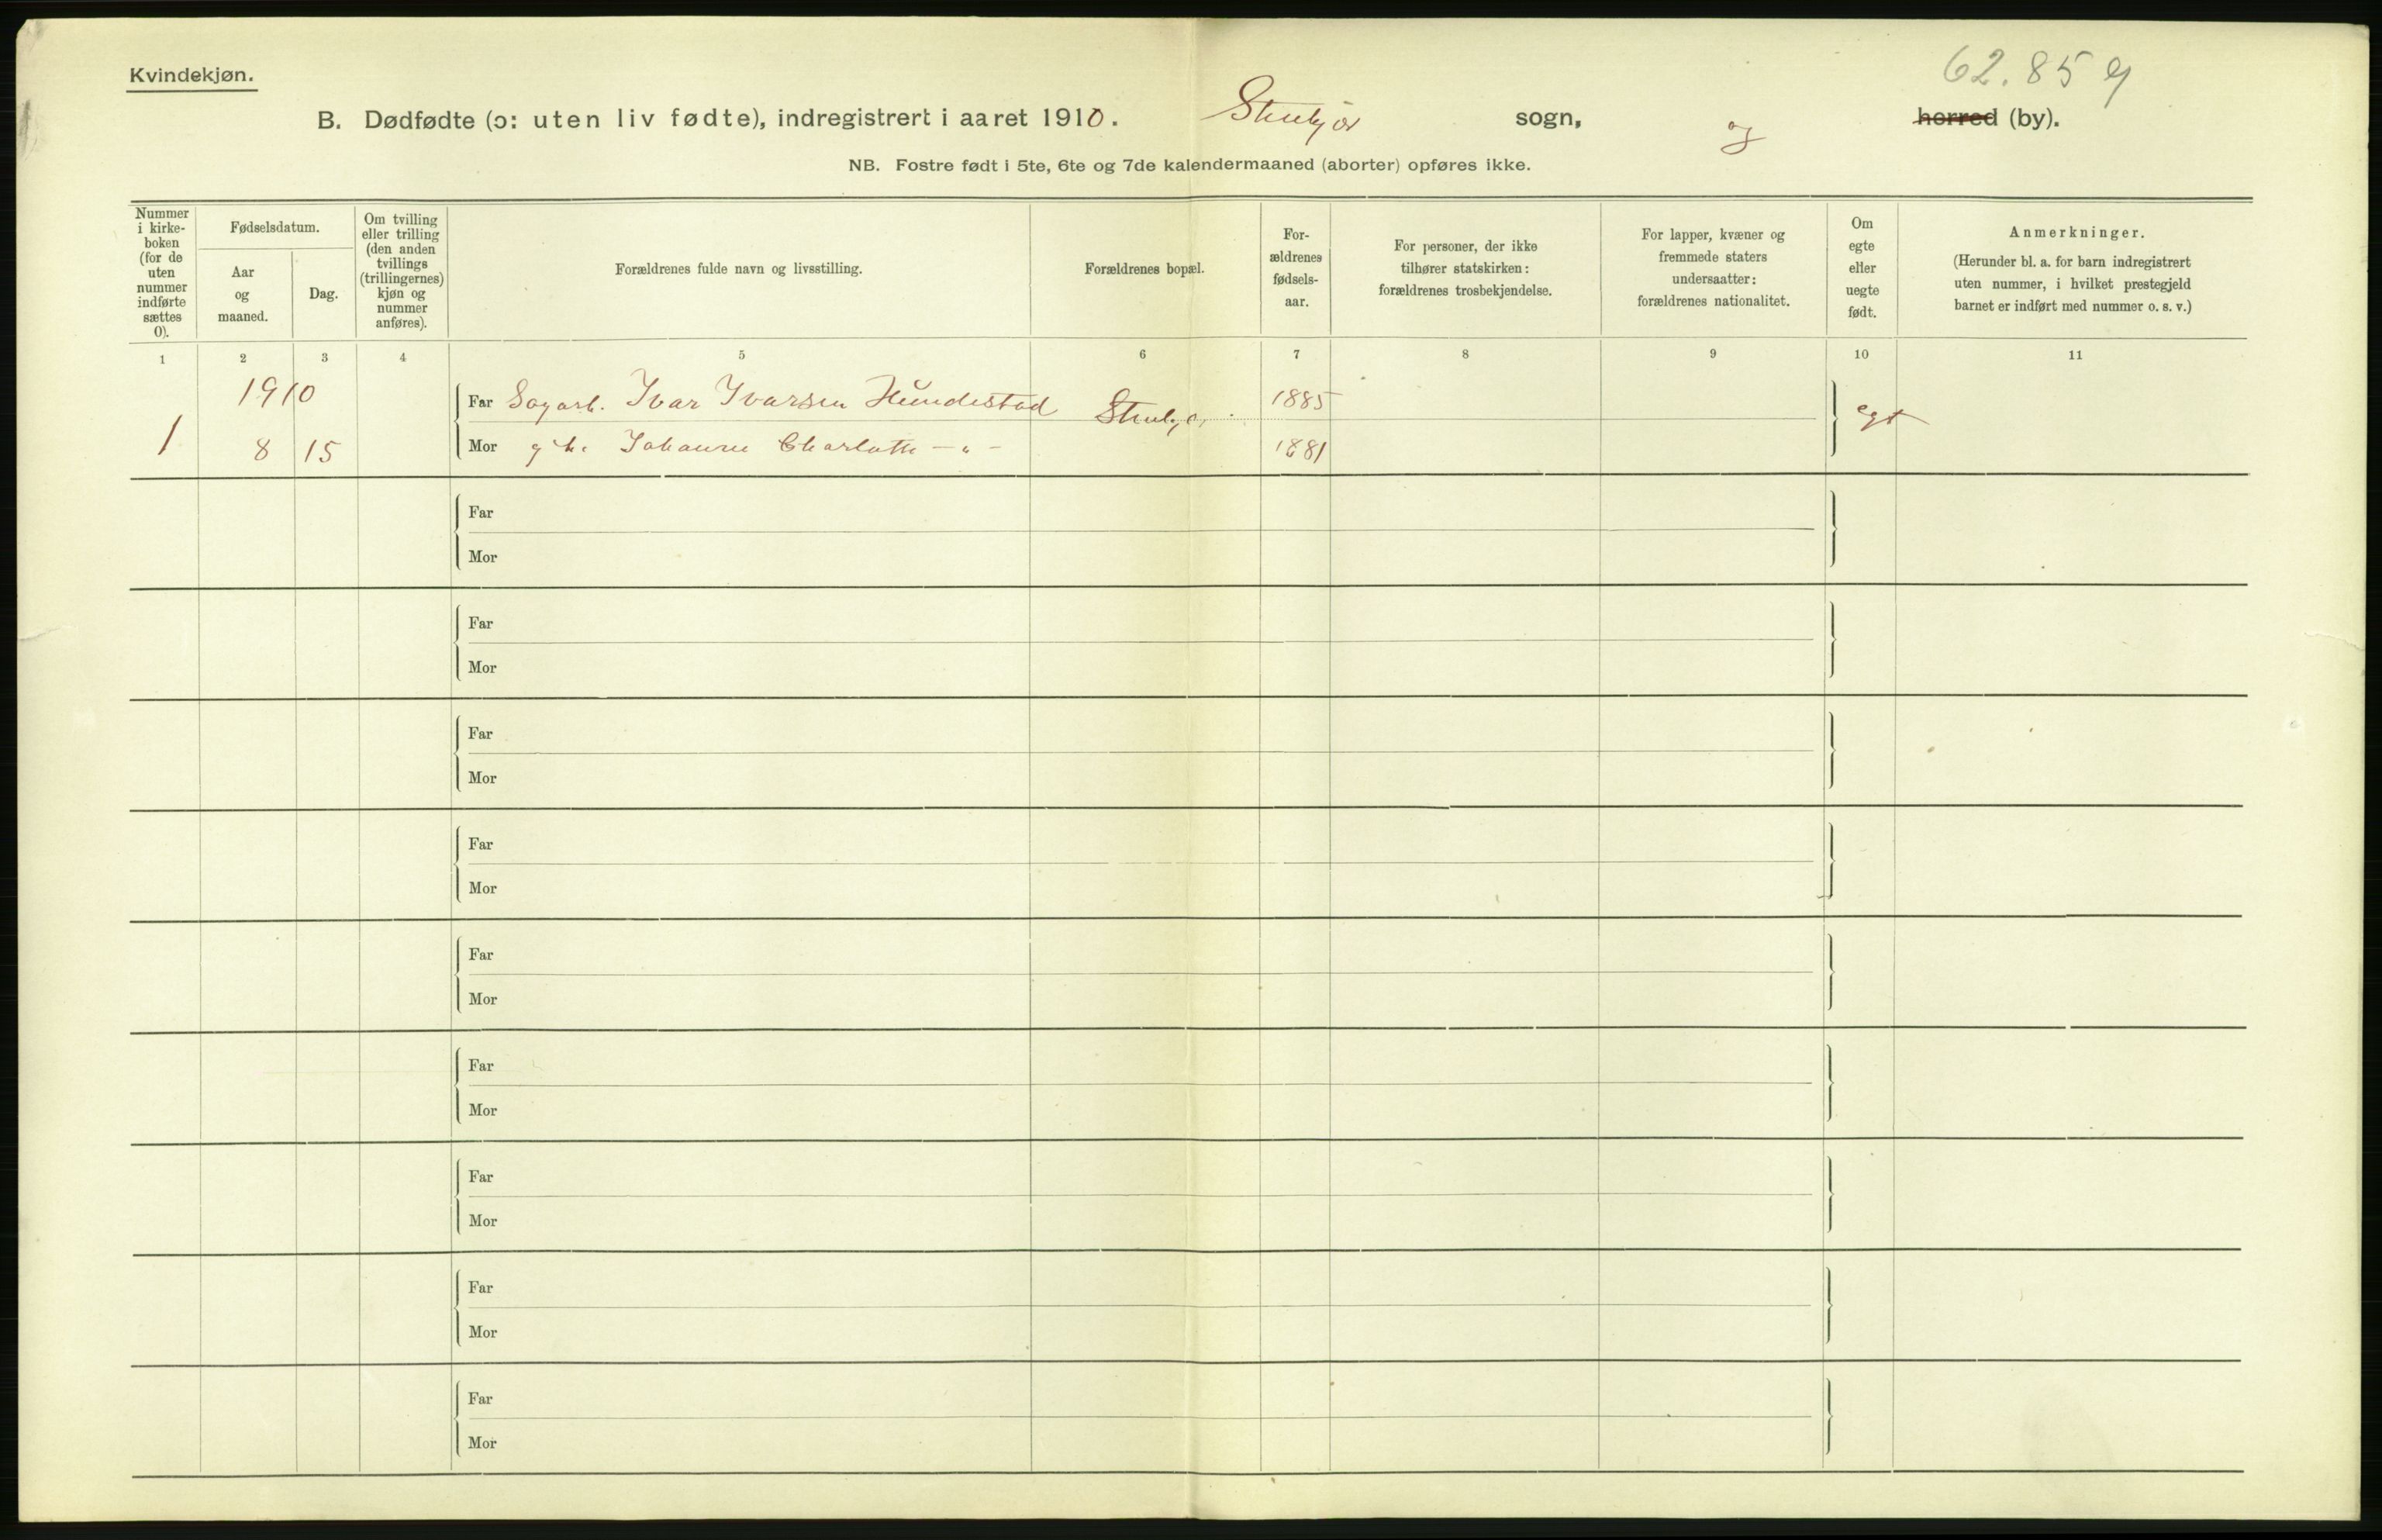 62.85 9
Kvindekjøn.
B. Dødfødte (ɔ: uten liv fødte), indregistrert i aaret 1910. Stenkjær sogn, og herred (by).
NB. Fostre født i 5te, 6te og 7de kalendermaaned (aborter) opføres ikke.
Nummer i kirke- boken (for de uten nummer indførte sættes 0).
Fødselsdatum.
Aar og maaned.
Dag.
Om tvilling eller trilling (den anden tvillings (trillingernes) kjøn og nummer anføres).
Forældrenes fulde navn og livsstilling.
Forældrenes bopæl.
For- ældrenes fødsels- aar.
For personer, der ikke tilhører statskirken: forældrenes trosbekjendelse.
For lapper, kvæner og fremmede staters undersaatter: forældrenes nationalitet.
Om egte eller uegte født.
Anmerkninger.
(Herunder bl. a. for barn indregistrert uten nummer, i hvilket prestegjeld barnet er indført med nummer o. s. v.)
1 2 3 4 5 6 7 8 9 10 11
1910
Far Sagarb. Ivar Ivarsen Hŭndestad Stenkjær 1885
1 8 15 Mor g. h. Johanne Charlotte – " – 1881 egt
Far
Mor
Far
Mor
Far
Mor
Far
Mor
Far
Mor
Far
Mor
Far
Mor
Far
Mor
Far
Mor